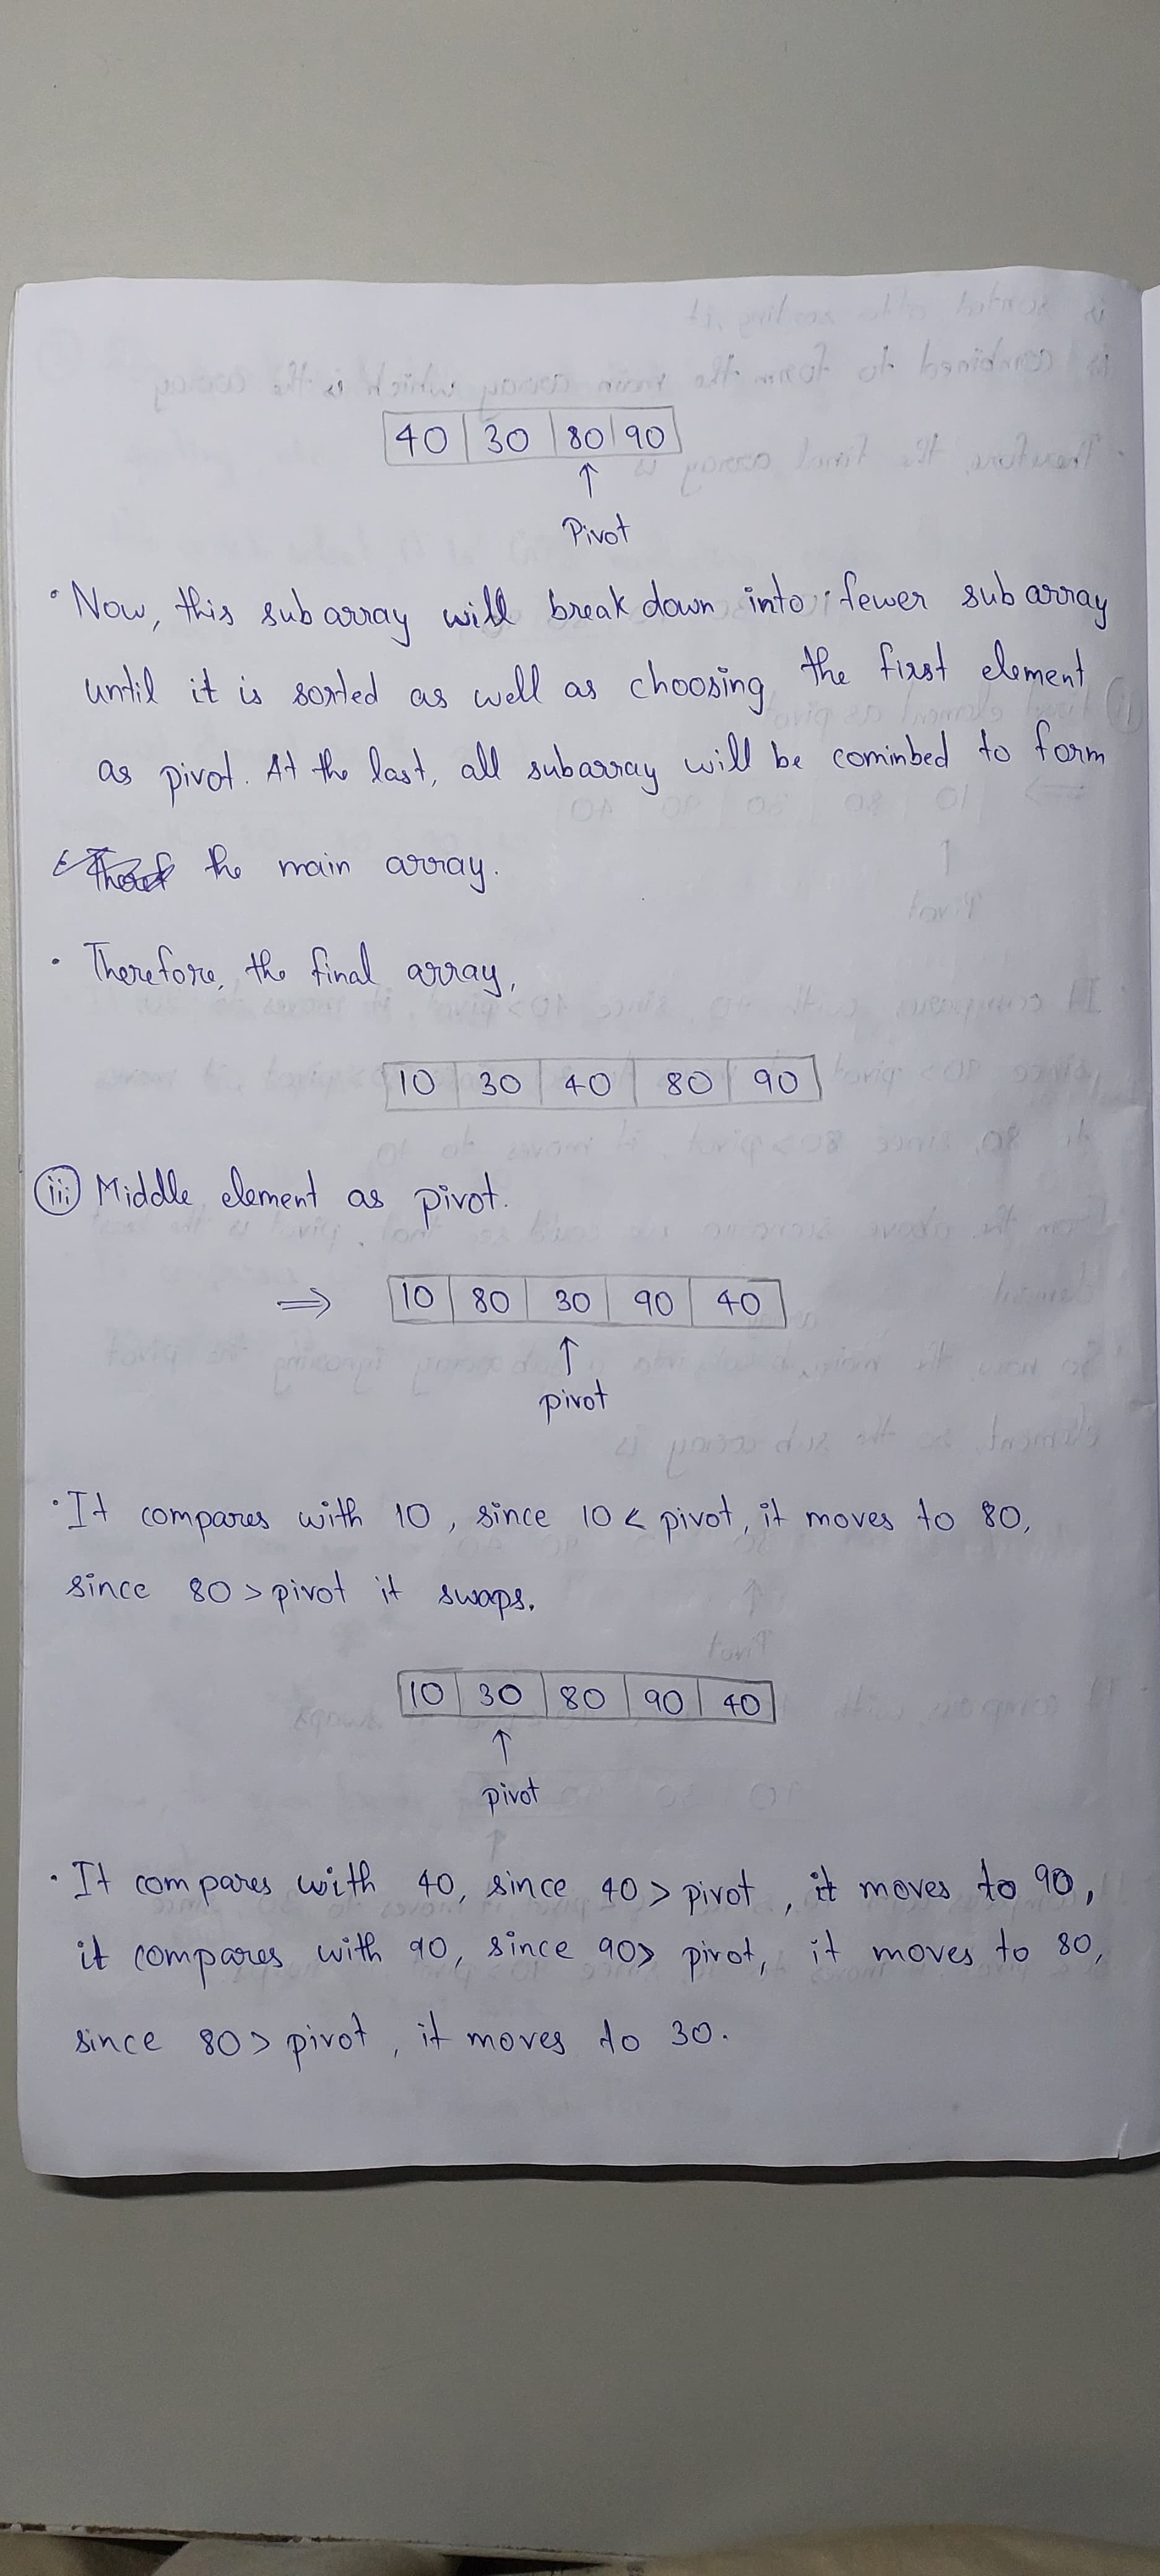 40 30 80 90
↑
Pivot
• Now, this sub array will break down into fewer sub array
until it is sorted as well as choosing the first element
as pivot. At the last, all subarray will be cominbed to form
the main array.
• Therefore, the final array,
10 30 40 80 90
(iii) Middle element as pivot.
⇒ 10 80 30 90 40
↑
pivot
• It compares with 10, since 10 < pivot, it moves to 80,
since 80 > pivot it swaps.
10 30 80 90 40
↑
pivot
• It compares with 40, since 40 > pivot, it moves to 90,
it compares with 90, since 90 > pivot, it moves to 80,
since 80 > pivot, it moves to 30.